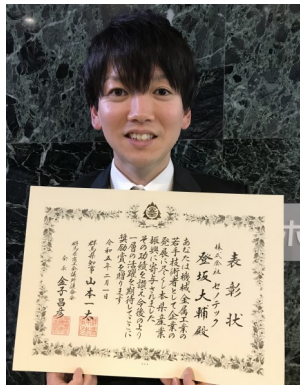 表彰状
株式会社 セノテック
登坂 大輔 殿
あなたは機械金属工業の
若手技術者として企業の
発展に尽くし本県産業
振興に寄与されました
その功績を讃え今後のより
一層の活躍を期待してここに
奨励賞を贈ります
令和五年二月一日
群馬県知事 山本一太
会長 金子昌彦